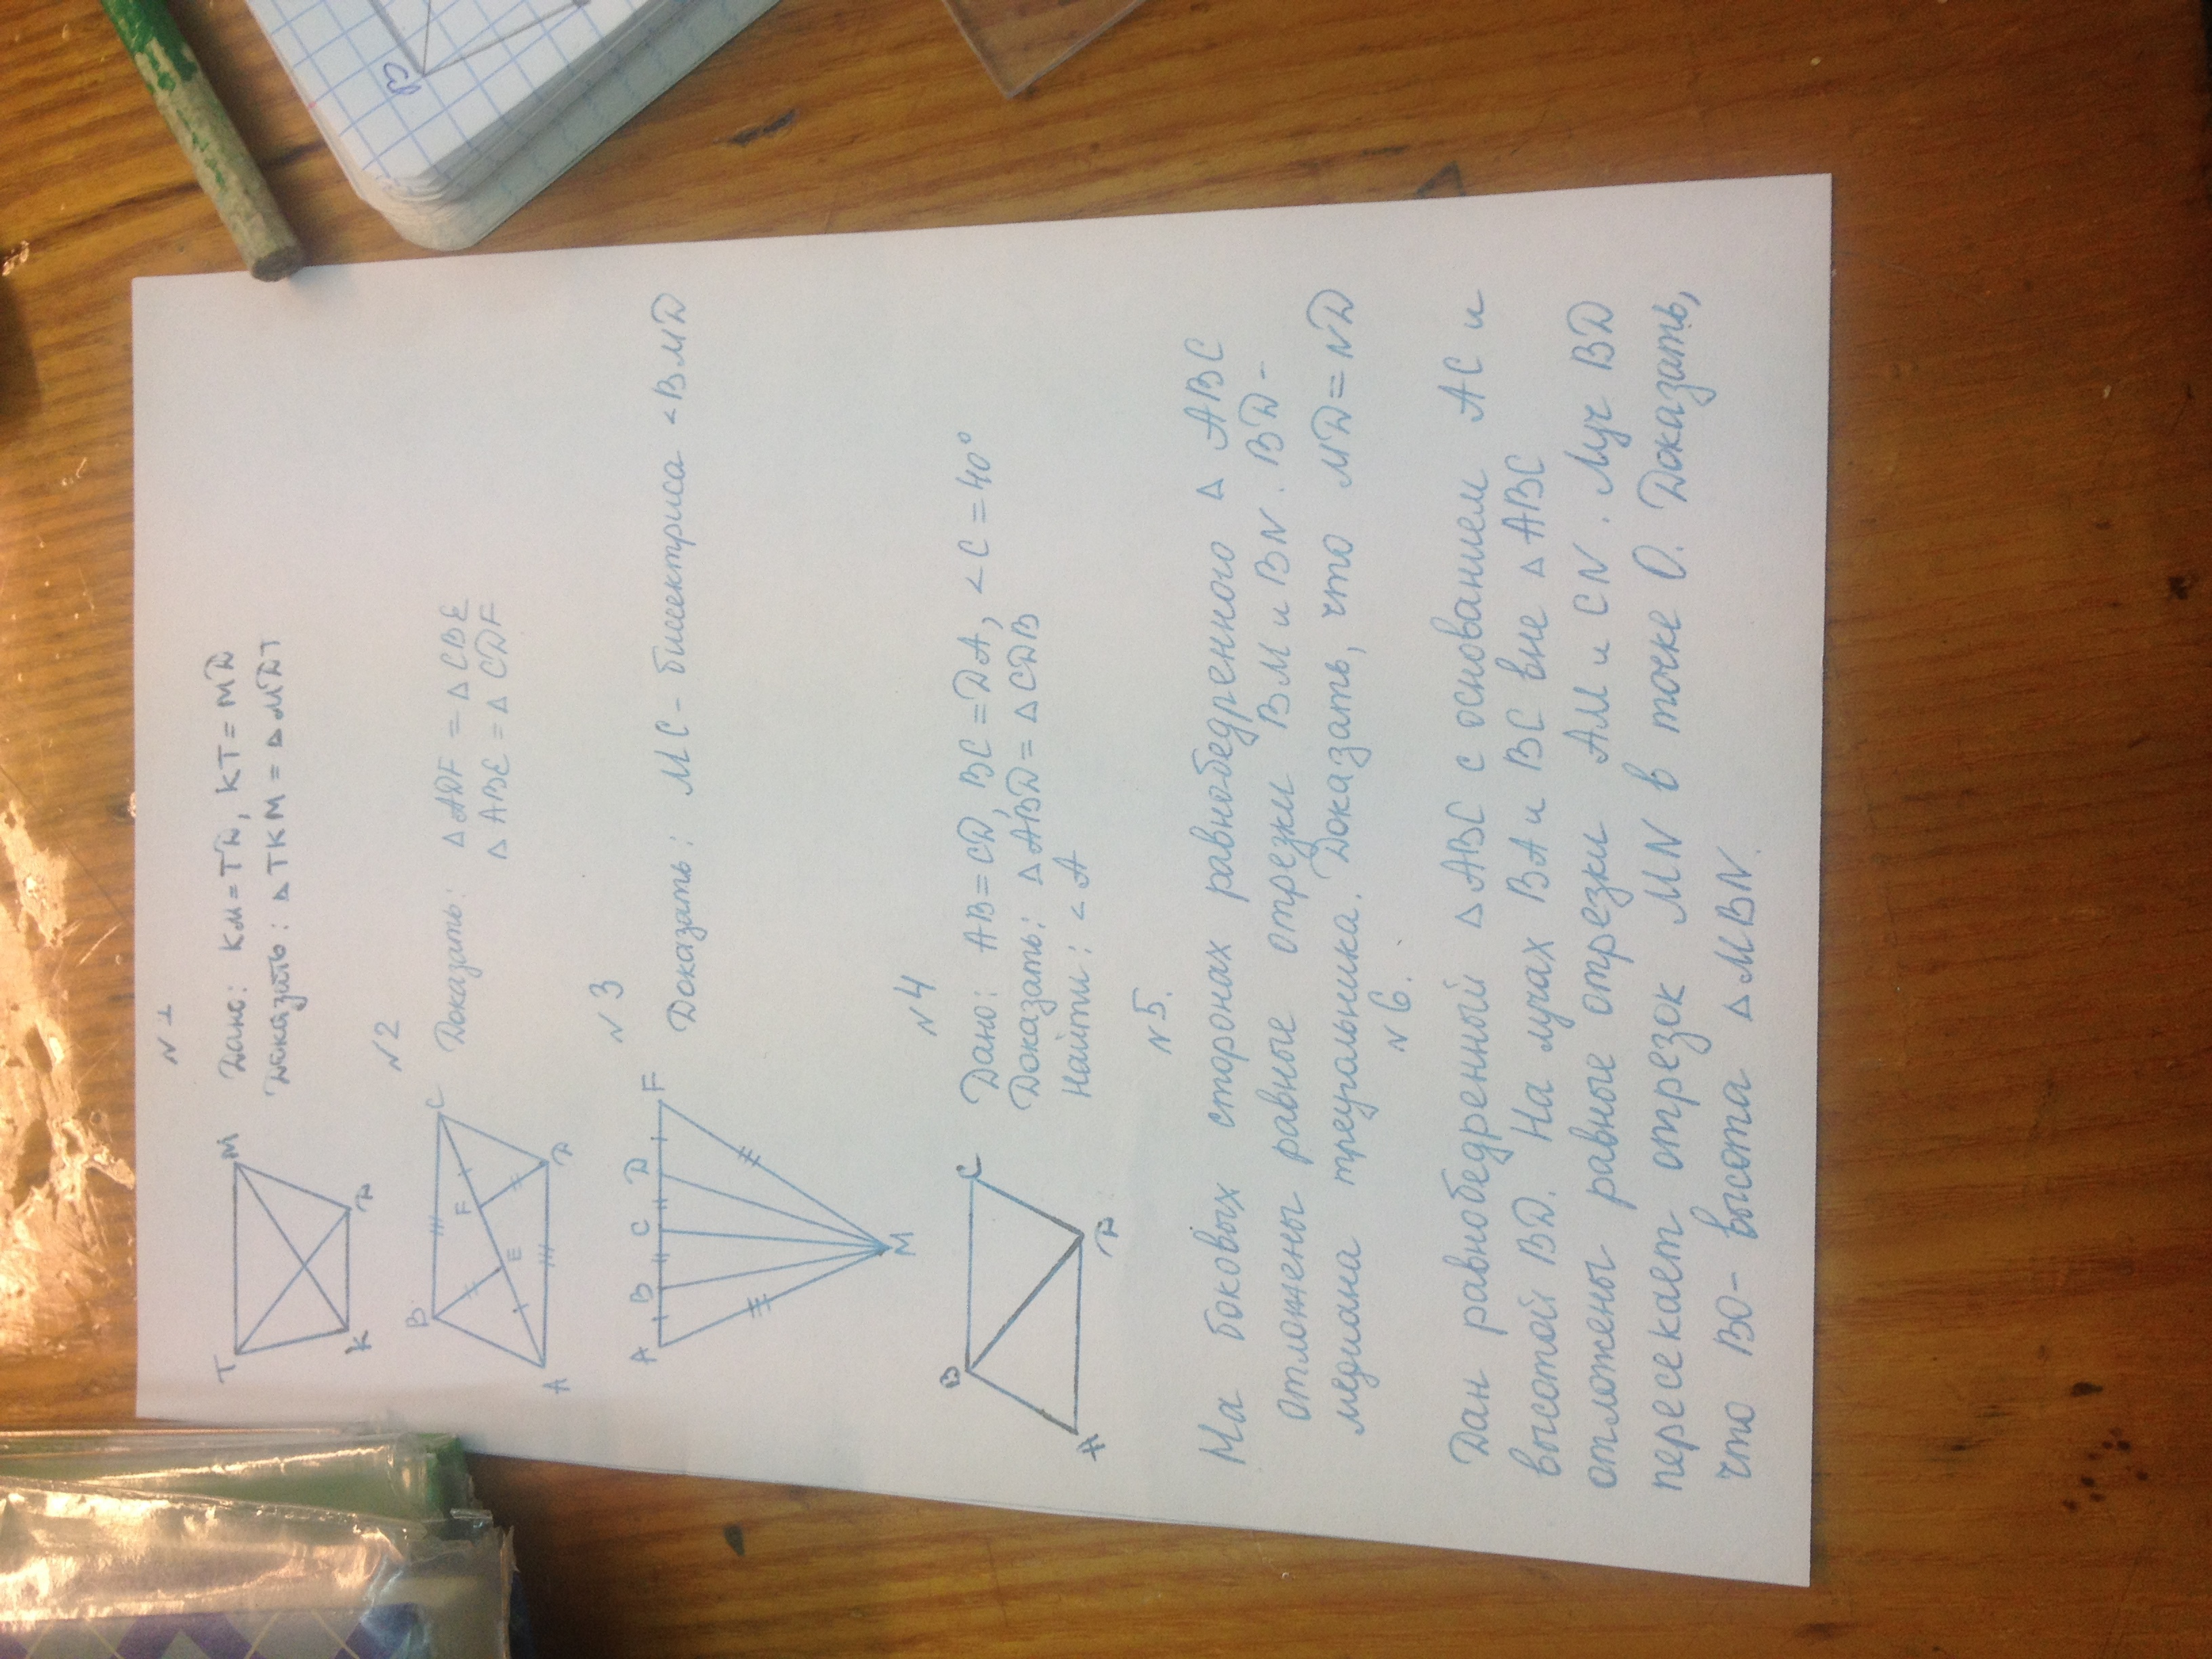 N 1
T M K D
Дано: KM = TD, KT = MD
Доказать: △ TKM = △ MDT
N 2
B C F E A D
Доказать: △ ADF = △ CBE
△ ABE = △ CDF
N 3
A B C D F M
Доказать: MC - биссектриса <BMD
N 4
B C A D
Дано: AB = CD, BC = DA, <C = 40°
Доказать: △ ABD = △ CDB
Найти: <A
N 5.
На боковых сторонах равнобедренного △ ABC
отложены равные отрезки BM и BN. BD -
медиана треугольника. Доказать, что MD = ND
N 6.
Дан равнобедренный △ ABC с основанием AC и
высотой BD. На лучах BA и BC вне △ ABC
отложены равные отрезки AM и CN. Луч BD
пересекает отрезок MN в точке O. Доказать,
что BO - высота △ MBN.